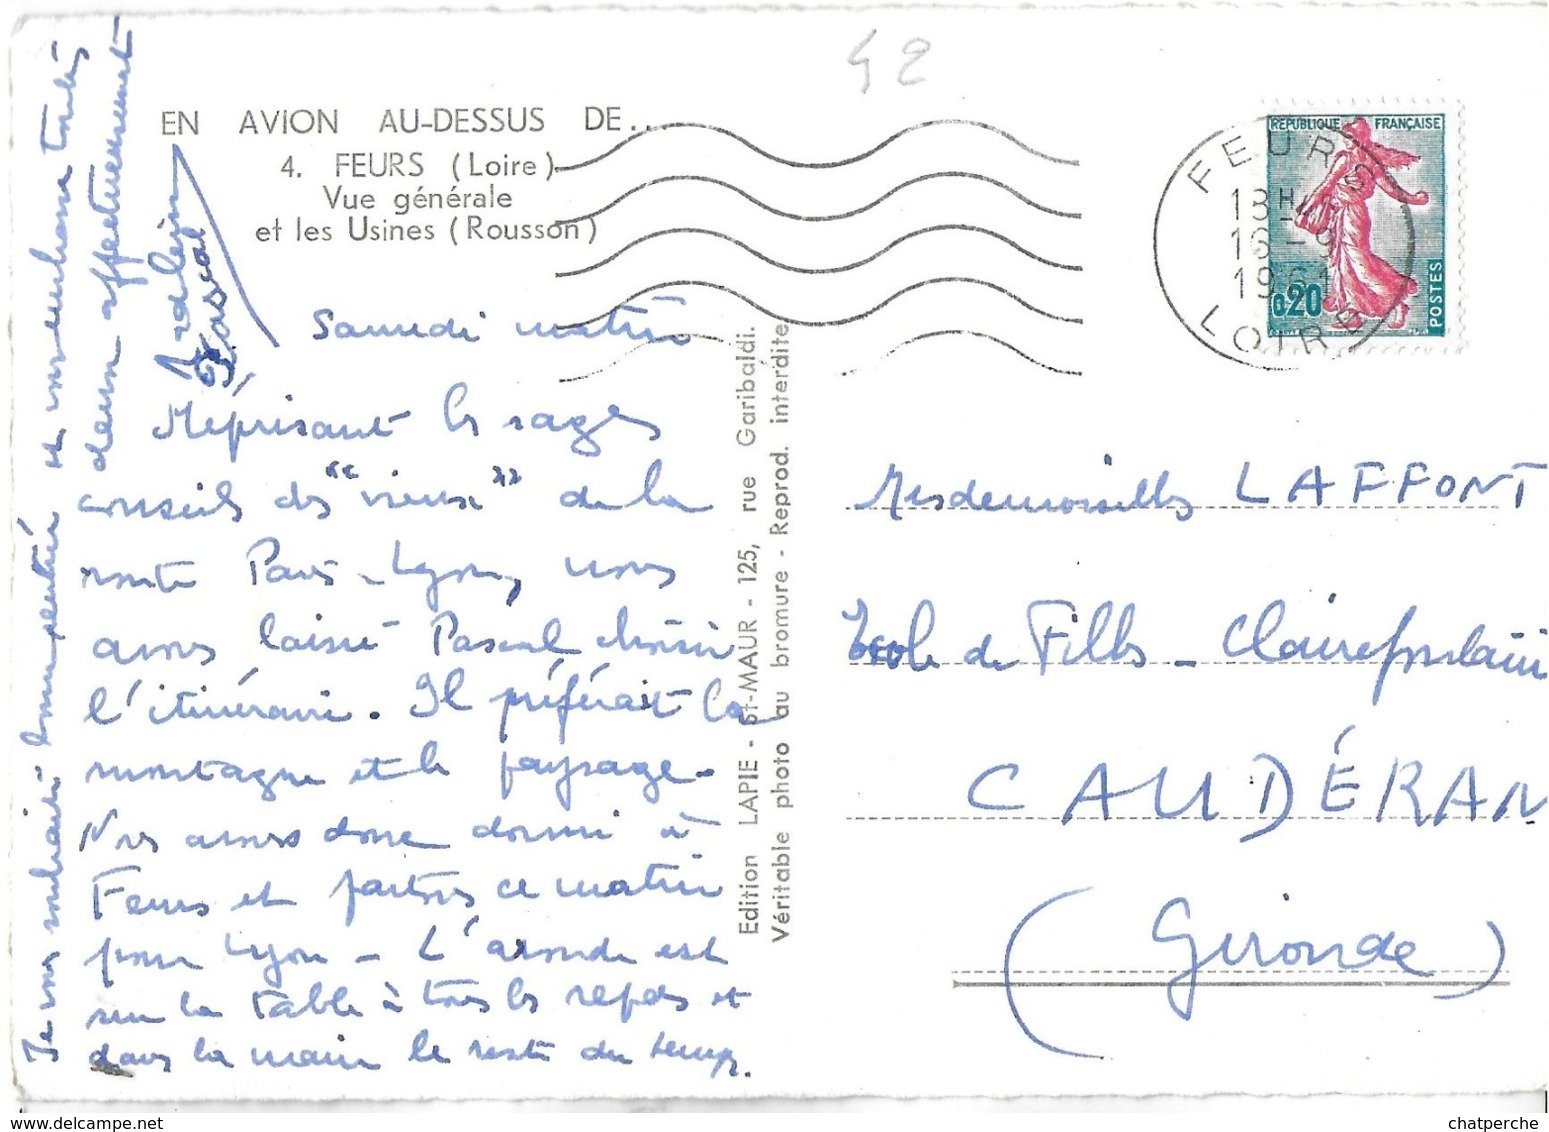 42
EN AVION AU-DESSUS DE...
4. FEURS (Loire)
Vue générale
et les Usines (Rousson)
Samedi matin
Méprisant les sages
conseils des "vieux" de la
route Paris-Lyon, nous
avons laissé Pascal choisir
l'itinéraire. Il préférait la
montagne et le paysage.
Nous avons donc dormi à
Feurs et partons ce matin
pour Lyon - L'aronde est
sur la table à tous les repas et
dans la main le reste du temps.
Je vous souhaite bonne rentrée et vous embrasse toutes
deux affectueusement
Pascal
Edition LAPIE - St-MAUR - 125, rue Garibaldi.
Véritable photo au bromure - Reprod. interdite
RÉPUBLIQUE FRANÇAISE
0,20
POSTES
FEURS
18H
16-9
1961
LOIRE
Mesdemoiselles LAFFONT
Ecole de Filles - Clairefontaine
CAUDÉRAN
(Gironde)
chatperche